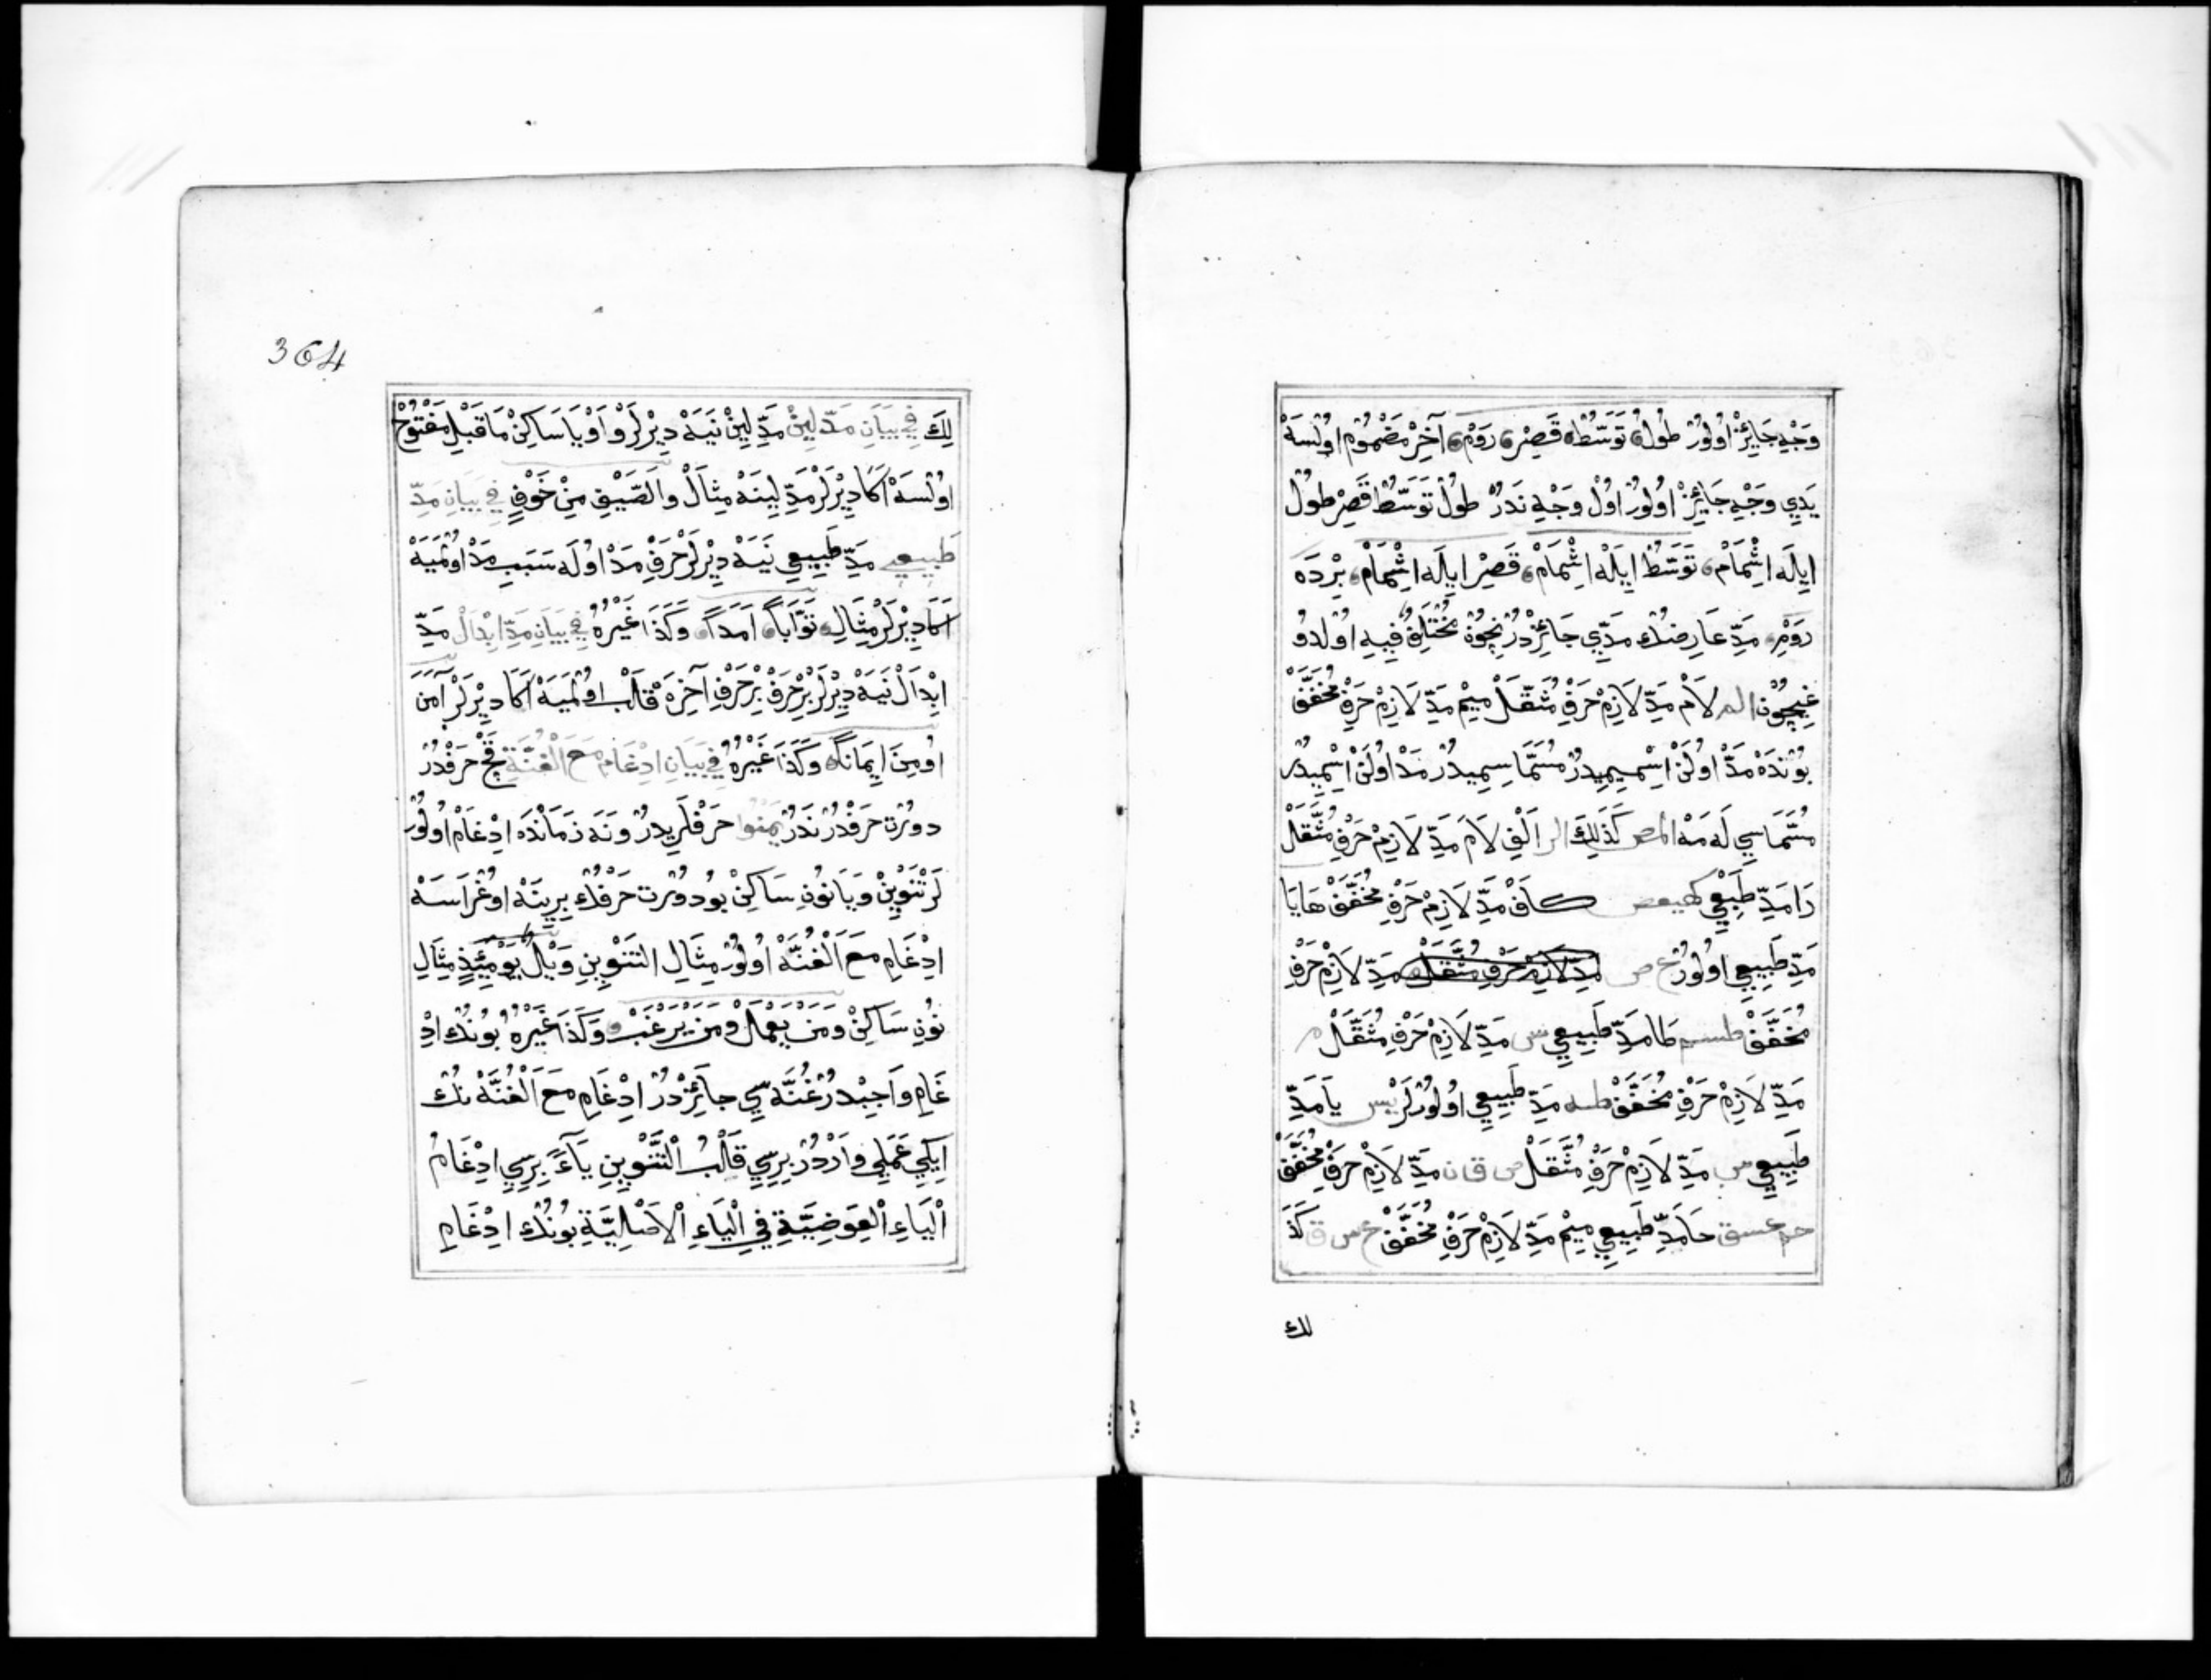 وَجْهِ جَائِزْ اُولُورْ طُولْ تَوَسُّطْ قَصِرْ رَوْمْ آخِرْ مَضْمُومْ اُولْسَهْ
يَدِي وَجْهِ جَائِزْ اُولُورْ اُولْ وَجْهِ نَدُرْ طُولْ تَوَسُّطْ قَصِرْ طُولْ
اِيلَه اِشْمَامْ تَوَسُّطْ اِيلَهْ اِشْمَامْ قَصِرْ اِيلَه اِشْمَامْ بِرْدَه
رَوْمِ مَدِّ عَارِضِنُكْ مَدِّي جَائِزْدُرْ نِچُونْ مُخْتَلِفْ فِيهِ اُولْدُو
غِيچُونْ الم لَامْ مَدِّ لَازِمْ حَرْفِ مُثَقَّلْ مِيمْ مَدِّ لَازِمْ حَرْفِ مُخَفَّفْ
بُونْدَهْ مَدْ اُولَنْ اِسْمِيمِيدُرْ مُسَمَّاسِيمِيدُرْ مَدْ اُولَنْ اِسْمِيدُرْ
مُسَمَّاسِي لَه مَهْ المص كَذَلِكَ الر اَلْفِ لَامَ مَدِّ لَازِمْ حَرْفِ مُثَقَّلْ
رَا مَدِّ طَبِعِي كهيعص كَافْ مَدِّ لَازِمْ حَرْفِ مُخَفَّفْ هَايَا
مَدِّ طَبِيعِي اُولُورْ ع ص مَدِّ لَازِمْ حَرْفِ مُثَقَّلْ مَدِّ لَازِمْ حَرْفِ
مُخَفَّفْ طسم طَا مَدِّ طَبِيعِي س مَدِّ لَازِمْ حَرْفِ مُثَقَّلْ م
مَدِّ لَازِمْ حَرْفِ مُخَفَّفْ طه مَدِّ طَبِيعِي اُولُورْلَرْ يس يَا مَدِّ
طَبِيعِي س مَدِّ لَازِمْ حَرْفِ مُثَقَّلْ ص ق ن مَدِّ لَازِمْ حَرْفِ مُخَفَّفْ
حم عسق حَا مَدِّ طَبِيعِي مِيمْ مَدِّ لَازِمْ حَرْفِ مُخَفَّفْ ع س ق كَذَ
لك
364
لِكَ فِي بَيَانِ مَدّ لِينْ مَدِّ لِينْ نَيَهْ دِيرْلَرْ وَاوْ يَا سَاكِنْ مَا قَبْلِ مَفْتُوحْ
اُولْسَهْ اَكَا دِيرْلَرْ مَدِّ لِينَهْ مِثَالْ وَالصَّيْفِ مِنْ خَوْفٍ فِي بَيَانِ مَدِّ
طَبِيعِي مَدِّ طَبِيعِي نَيَهْ دِيرْلَرْ حَرْفِ مَدْ اُولَه سَبَبِ مَدْ اُولْمَيَهْ
اَكَا دِيرْلَرْ مِثَالِ تَوَّاباً اَمَداً وَكَذَا غَيْرُهُ فِي بَيَانِ مَدِّ اِبْدَالْ مَدِّ
اِبْدَالْ نَيَهْ دِيرْلَرْ بِرْ حَرْفْ بِرْ حَرْفِ آخِرَهْ قَلْبْ اُولْمَيَهْ اَكَا دِيرْلَرْ آمَنَ
اُومِنَ اِيمَاناً وَكَذَا غَيْرُهُ فِي بَيَانِ اِدْغَامِ مَعَ الْغُنَّةِ قَچْ حَرْفْدُرْ
دورْت حَرْفْدُرْ نَدُرْ يَمْنُوا حَرْفْلَرِيدُرْ وَنَه زَمَانْدَه اِدْغَامْ اُولُورْ
لَرْ تَنْوِينْ وَيَا نُونِ سَاكِنْ بُو دُورْت حَرْفُكْ بِرِينَهْ اُوغْرَاسَهْ
اِدْغَامِ مَعَ الْغُنَّهْ اُولُورْ مِثَالِ التَّنْوِينِ وَيْلٌ يَوْمَئِذٍ مِثَالِ
نُونِ سَاكِنْ وَمَنْ يَعْمَلْ وَمَنْ يَرْغَبْ وَكَذَا غَيْرُهُ بُونُكْ اِدْ
غَامِ وَاجِبْدُرْ غُنَّه سِي جَائِزْدُرْ اِدْغَامِ مَعَ الْغُنَّهْ نُكْ
اِيكِي عَمَلِي وَارْدُرْ بِرِسِي قَلْبُ التَّنْوِينِ يَاءً بِرِسِي اِدْغَامُ
الْيَاءِ الْعِوَضِيَّةِ فِي الْيَاءِ الْاَصْلِيَّةِ بُونُكْ اِدْغَامِ